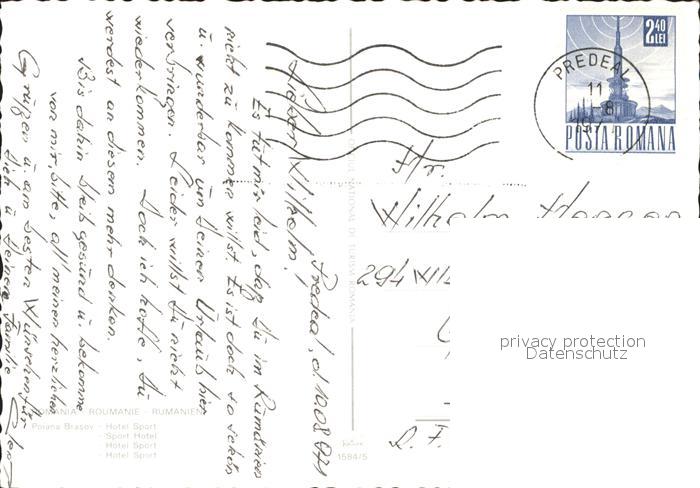 Predeal, d. 10.08.971
Lieber Wilhelm!
Es tut mir leid, daß Du im Rumänien
nicht zu kommen willst. Es ist doch so schön
u. wunderbar um Deinen Urlaub hier
verbringen. Leider willst Du nicht
wiederkommen. Doch ich hoffe, Du
werdest an diesem mehr denken.
Bis dahin bleib gesund u. bekomme
von mir, bitte, all' meinen herzlichen
Grüßen u. am besten Wünschen für
Dich u. Deine Familie
2,40
LEI
POȘTA ROMANA
PREDEAL
11
-8
197
Hr.
Wilhelm
294
D. F.
privacy protection
Datenschutz
ROMANIA - ROUMANIE - RUMÄNIEN
Poiana Brașov - Hotel Sport
- Sport Hotel
- Hotel Sport
- Hotel Sport
1584/5